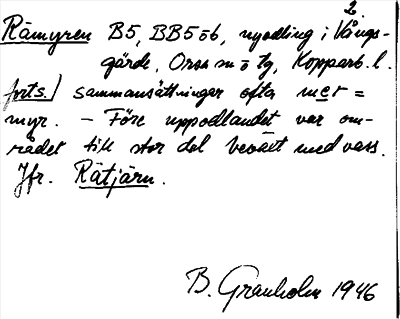 2.
Rämyren B5, BB5 ö6, nyodling i Vångs-
gärde, Orsa sn o tg, Kopparb. l.
forts./ sammansättningar ofta mer =
myr. – Före uppodlandet var om-
rådet till stor del beväxt med vass.
Jfr. Rätjärn.
B. Granholm 1946